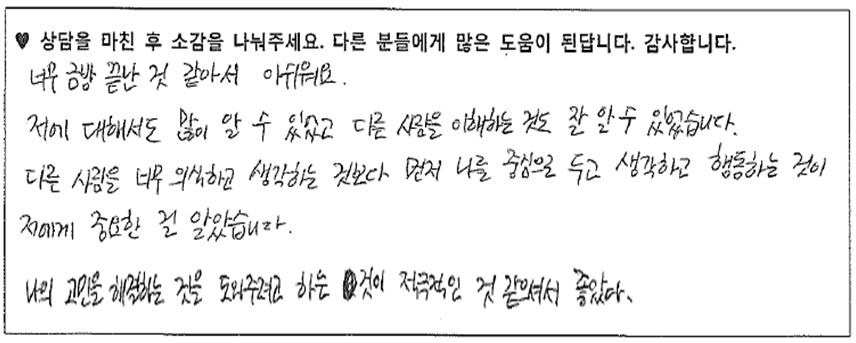 ♥ 상담을 마친 후 소감을 나눠주세요. 다른 분들에게 많은 도움이 된답니다. 감사합니다.
너무 금방 끝난 것 같아서 아쉬워요.
저에 대해서도 많이 알 수 있었고 다른 사람을 이해하는 것도 잘 알 수 있었습니다.
다른 사람을 너무 의식하고 생각하는 것보다 먼저 나를 중심으로 두고 생각하고 행동하는 것이
저에게 중요한 걸 알았습니다.
나의 고민을 해결하는 것을 도와주려고 하는 것이 적극적인 것 같으셔서 좋았다.